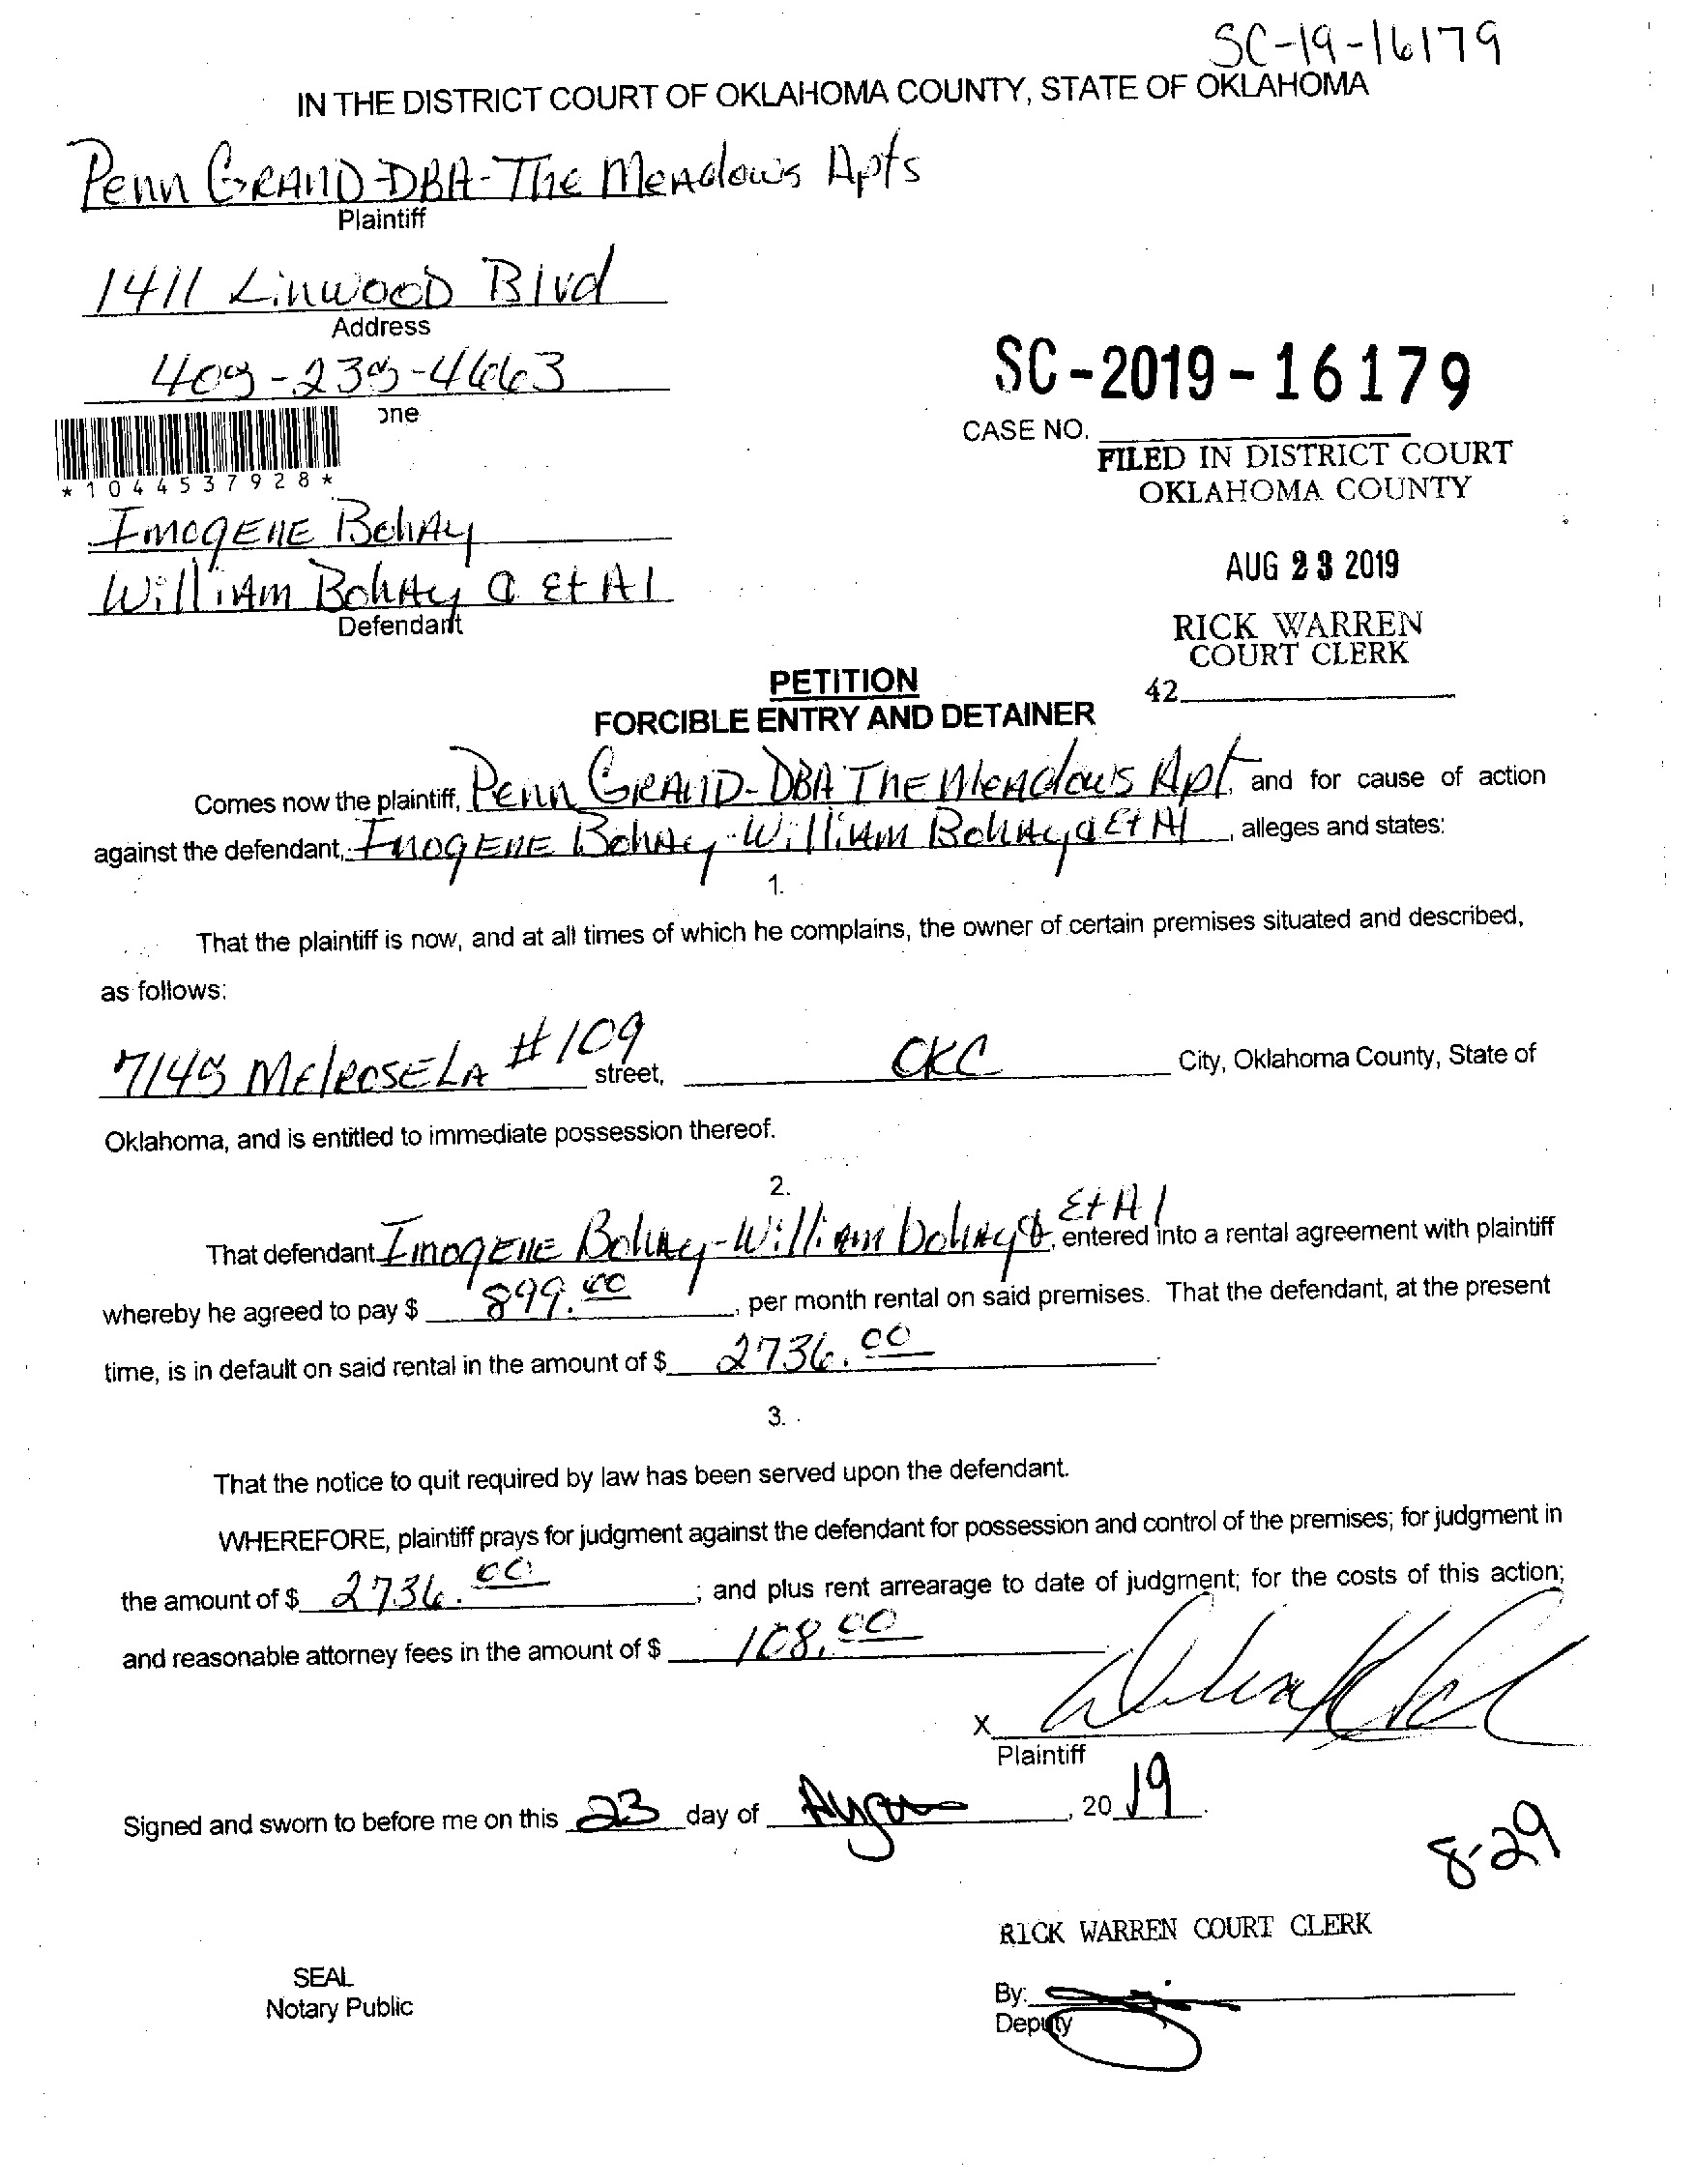 SC-19-16179
IN THE DISTRICT COURT OF OKLAHOMA COUNTY, STATE OF OKLAHOMA
Penn GRAND-DBA-The Meadows Apts
Plaintiff
1411 Linwood Blvd
Address
SC-2019-16179
one
CASE NO.
FILED IN DISTRICT COURT
OKLAHOMA COUNTY
*1044537928*
ImogENE BohAy
AUG 23 2019
WilliAm BohAy & Et Al
Defendant
RICK WARREN
COURT CLERK
PETITION
42
FORCIBLE ENTRY AND DETAINER
Comes now the plaintiff, Penn GRAND-DBA THE MEAdows Apt. and for cause of action
against the defendant, ImogENE BohAy-WilliAm BohAy & Et Al, alleges and states:
1.
That the plaintiff is now, and at all times of which he complains, the owner of certain premises situated and described,
as follows:
7145 MElROSE LA #109 street, OKC City, Oklahoma County, State of
Oklahoma, and is entitled to immediate possession thereof.
2.
That defendant ImogENE BohAy-William bohAy & Et Al, entered into a rental agreement with plaintiff
whereby he agreed to pay $ 899.00, per month rental on said premises. That the defendant, at the present
time, is in default on said rental in the amount of $ 2736.00.
3.
That the notice to quit required by law has been served upon the defendant.
WHEREFORE, plaintiff prays for judgment against the defendant for possession and control of the premises; for judgment in
the amount of $ 2736.00; and plus rent arrearage to date of judgment; for the costs of this action;
and reasonable attorney fees in the amount of $ 108.00
X
Plaintiff
Signed and sworn to before me on this 23 day of , 20 19.
8-29
RICK WARREN COURT CLERK
SEAL
Notary Public
By:
Deputy